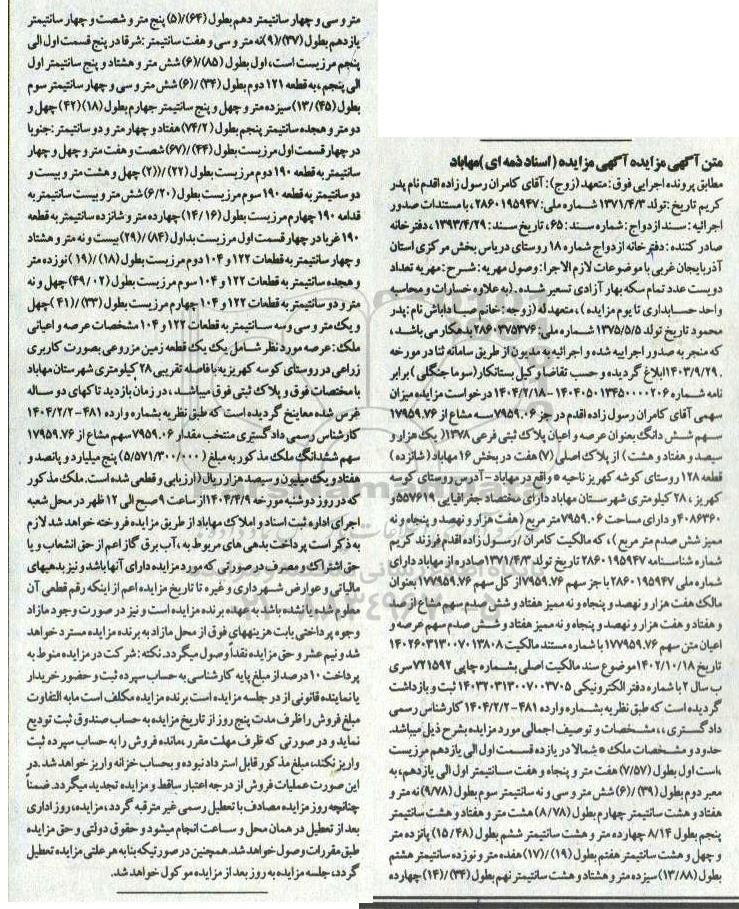 متن آگهی مزایده آگهی مزایده (اسناد ذمه ای )مهاباد
مطابق پرونده اجرایی فوق : متعهد (زوج): آقای کامران رسول زاده اقدم نام پدر
کریم تاریخ : تولد ۱۳۷۱/۴/۳ شماره ملی : ۲۸۶۰۱۹۵۹۴۷ ، با مستندات صدور
اجرائیه : سند ازدواج : شماره سند : ۶۵، تاریخ سند : ۱۳۹۳/۴/۲۹ ، دفترخانه
صادر کننده : دفترخانه ازدواج شماره ۱۸ روستای دریاس بخش مرکزی استان
آذربایجان غربی با موضوعات لازم الاجرا : وصول مهریه : شرح : مهریه تعداد
دویست عدد تمام سکه بهار آزادی تسعیر شده . (به علاوه خسارات و محاسبه
واحد حسابداری تا یوم مزایده )، متعهدله (زوجه : خانم صبا داباش نام : پدر
محمود تاریخ تولد ۱۳۷۵/۵/۵ شماره ملی : ۲۸۶۰۳۷۵۳۷۶ بدهکار می باشد ،
که منجر به صدور اجراییه شده و اجرائیه به مدیون از طریق سامانه ثنا در مورخه
۱۴۰۳/۹/۲۹.ابلاغ گردیده و حسب تقاضا وکیل بستانکار (سوما جنگلی ) برابر
نامه شماره ۱۴۰۴۰۵۰۱۳۴۵۰۰۰۰۲۰۶-۱۴۰۴/۲/۱۸ درخواست مزایده میزان
سهمی آقای کامران رسول زاده اقدم در جز ۷۹۵۹.۰۶ سه مشاع از ۱۷۹۵۹.۷۶
سهم شش دانگ بعنوان عرصه و اعیان پلاک ثبتی فرعی ۱۳۷۸( یک هزار و
سیصد و هفتاد و هشت ) از پلاک اصلی (۷) هفت در بخش ۱۶ مهاباد (شانزده )
قطعه ۱۲۸ روستای کوشه کهریز ناحیه * واقع در مهاباد -آدرس روستای کوسه
کهریز ، ۲۸ کیلومتری شهرستان مهاباد دارای مختصاد جغرافیایی ۵۵۷۶۱۹و
۴۰۸۶۳۶۰ و دارای مساحت ۷۹۵۹.۰۶متر مربع (هفت هزار و نهصد و پنجاه و نه
ممیز شش صدم متر مربع )، که مالکیت کامران /رسول زاده اقدم فرزند کریم
شماره شناسنامه ۲۸۶۰۱۹۵۹۴۷ تاریخ تولد ۱۳۷۱/۴/۳صادره از مهاباد دارای
شماره ملی ۲۸۶۰۱۹۵۹۴۷ با جز سهم ۷۹۵۹.۷۶از کل سهم ۱۷۷۹۵۹.۷۶ بعنوان
مالک هفت هزار و نهصد و پنجاه و نه ممیز هفتاد و شش صدم سهم مشاع از صد
و هفتاد و هفت هزار و نهصد و پنجاه و نه ممیز هفتاد و شش صدم سهم عرصه و
اعیان متن سهم ۱۷۷۹۵۹.۷۶ با شماره مستند مالکیت ۱۴۰۲۶۰۳۱۳۰۰۷۰۱۳۸۰۸
تاریخ ۱۴۰۲/۱۰/۱۸موضوع سند مالکیت اصلی بشماره چاپی ۷۲۱۵۹۲ سری
ب سال ۲ با شماره دفتر الکترونیکی ۱۴۰۳۲۰۳۱۳۰۰۷۰۰۳۷۰۵ ثبت و بازداشت
گردیده است که طبق نظریه بشماره وارده ۴۸۱-۱۴۰۴/۲/۲ کارشناس رسمی
دادگستری ،، مشخصات و توصیف اجمالی مورد مزایده بشرح ذیل میباشد.
حدود و مشخصات ملک * شمالا در یازده قسمت اول الی یازدهم مرزیست
،است اول بطول (۷/۵۷) هفت متر و پنجاه و هفت سانتیمتر اول الی یازدهم، به
معبر دوم بطول (۳۹) /(۶) شش متر و سی و نه سانتیمتر سوم بطول (۹/۷۸) نه متر و
هفتاد و هشت سانتیمتر چهارم بطول (۸/۷۸) هشت متر و هفتاد و هشت سانتیمتر
پنجم بطول ۸/۱۴ چهارده متر و هشت سانتیمتر ششم بطول (۱۵/۴۸) پانزده متر
و چهل و هشت سانتیمتر هفتم بطول (۱۹)/(۱۷) هفده متر و نوزده سانتیمتر هشتم
بطول (۱۳/۸۸) سیزده متر و هشتاد و هشت سانتیمتر نهم بطول (۳۴)/(۱۴) چهارده
متر و سی و چهار سانتیمتر دهم بطول (۶۴)/(۵) پنج متر و شصت و چهار سانتیمتر
یازدهم بطول (۳۷)/(۹)نه متر و سی و هفت سانتیمتر : شرقا در پنج قسمت اول الی
پنجم مرزیست است ، اول بطول (۸۵)/(۶) شش متر و هشتاد و پنج سانتیمتر اول
الی پنجم ، به قطعه ۱۲۱ دوم بطول (۳۴) /(۶) شش متر و سی و چهار سانتیمتر سوم
بطول (۴۵) /(۱۳) سیزده متر و چهل و پنج سانتیمتر چهارم بطول (۱۸) (۴۲) چهل و
دو متر و هجده سانتیمتر پنجم بطول (۷۴/۲) هفتاد و چهار متر و دو سانتیمتر : جنوبا
در چهار قسمت اول مرزیست بطول (۴۴) /(۶۷) شصت و هفت متر و چهل و چهار
سانتیمتر به قطعه ۱۹۰ دوم مرزیست بطول (۲۲) /((۲) چهل و هشت متر و بیست و
دو سانتیمتر به قطعه ۱۹۰ سوم مرزیست بطول (۶/۲۰) شش متر و بیست سانتیمتر به
قدامه ۱۹۰ چهارم مرزیست بطول (۱۴/۱۶) چهارده متر و شانزده سانتیمتر به قطعه
۱۹۰ غربا در چهار قسمت اول مرزیست بداول (۸۴) /(۲۹) بیست و نه متر و هشتاد
و چهار سانتیمتر به قطعات ۱۲۲ و ۱۰۴ دوم مرزیست بطول (۱۸) /(۱۹) نوزده متر
و هجده سانتیمتر به قطعات ۱۲۲ و ۱۰۴ سوم مرزیست بطول (۴۹/۰۲) چهل و نه
متر و دو سانتیمتر به قطعات ۱۲۲ و ۱۰۴ چهارم مرزیست بطول (۳۳) /(۴۱) چهل
و یک متر و سی وسه سانتیمتر به قطعات ۱۲۲ و ۱۰۴ مشخصات عرصه و اعیانی
ملک : عرصه مورد نظر شامل یک یک قطعه زمین مزروعی بصورت کاربری
زراعی در روستای کوسه کهریز به فاصله تقریبی ۲۸ کیلومتری شهرستان مهاباد
با مختصات فوق و پلاک ثبتی فوق میباشد ، در زمان بازدید تاکهای دو ساله
غرس شده معاینخ گردیده است که طبق نظریه بشماره وارده ۴۸۱-۱۴۰۴/۲/۲
کارشناس رسمی دادگستری منتخب مقدار ۷۹۵۹.۰۶ سهم مشاع از ۱۷۹۵۹.۷۶
سهم ششدانگ ملک مذکور به مبلغ (۵/۵۷۱/۳۰۰/۰۰۰) پنج میلیارد و پانصد و
هفتاد و یک میلیون و سیصد هزار ریال (ارزیابی و قطعی شده است. ملک مذکور
که در روز دوشنبه مورخه ۱۴۰۴/۴/۹از ساعت ۹ صبح الی ۱۲ ظهر در محل شعبه
اجرای اداره ثبت اسناد و املاک مهاباد از طریق مزایده فروخته خواهد شد لازم
به ذکر است پرداخت بدهی های مربوط به ، آب برق گاز اعم از حق انشعاب و یا
حق اشتراک و مصرف در صورتی که مورد مزایده دارای آنها باشد و نیز بدهیهای
مالیاتی و عوارض شهرداری و غیره تا تاریخ مزایده اعم از اینکه رقم قطعی آن
معلوم شده یا نشده باشد به عهده برنده مزایده است و نیز در صورت وجود مازاد
وجوه پرداختی بابت هزینههای فوق از محل مازاد به برنده مزایده مسترد خواهد
شد و نیم عشر و حق مزایده نقداً وصول میگردد. نکته : شرکت در مزایده منوط به
پرداخت ۱۰ درصد از مبلغ پایه کارشناسی به حساب سپرده ثبت و حضور خریدار
یا نماینده قانونی از در جلسه مزایده است برنده مزایده مکلف است مابه التفاوت
مبلغ فروش را ظرف مدت پنج روز از تاریخ مزایده به حساب صندوق ثبت تودیع
نماید و در صورتی که ظرف مهلت مقرر ، مانده فروش را به حساب سپرده ثبت
واریز نکند، مبلغ مذکور قابل استرداد نبوده و بحساب خزانه واریز خواهد شد. در
این صورت عملیات فروش از درجه اعتبار ساقط و مزایده تجدید میگردد. ضمناً
چنانچه روز مزایده مصادف با تعطیل رسمی غیر مترقبه گردد ، مزایده ، روز اداری
بعد از تعطیل در همان محل و ساعت انجام میشود و حقوق دولتی و حق مزایده
طبق مقررات وصول خواهد شد. همچنین در صورتیکه بنا به هر علتی مزایده تعطیل
گردد، جلسه مزایده به روز بعد از مزایده موکول خواهد شد.